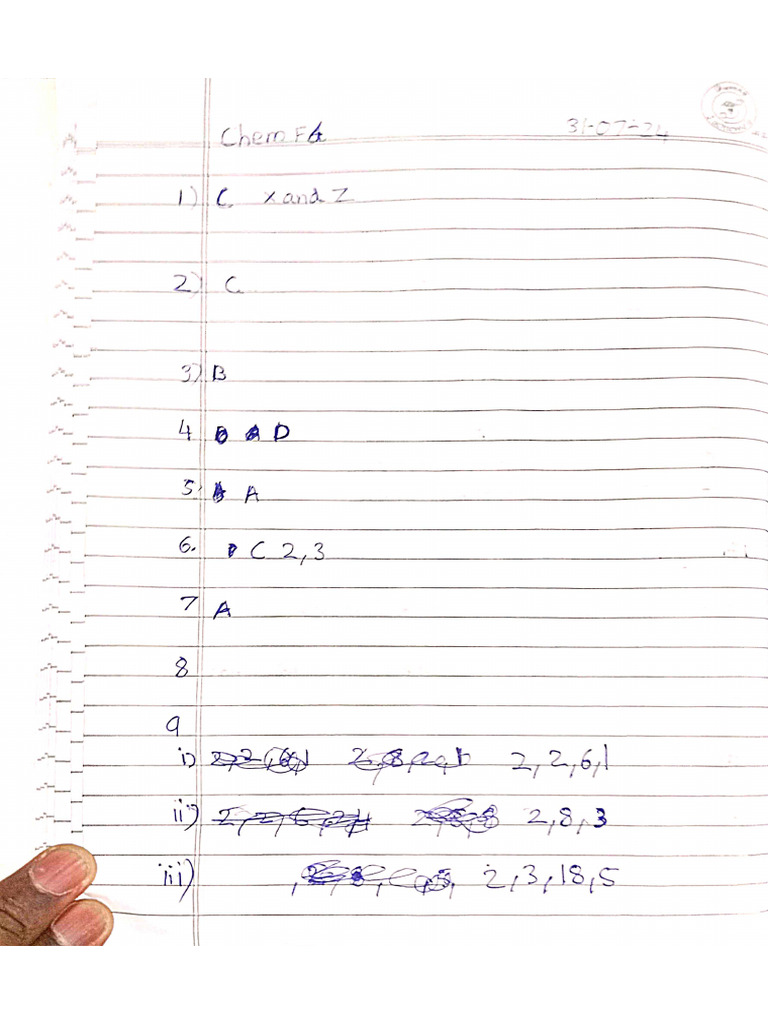 Chem F4 31-07-24
1) C X and Z
2) C
3) B
4 D
5. A
6. C 2,3
7 A
8
9
i) 2,2,6,1
ii) 2,8,3
iii) 2,3,18,5